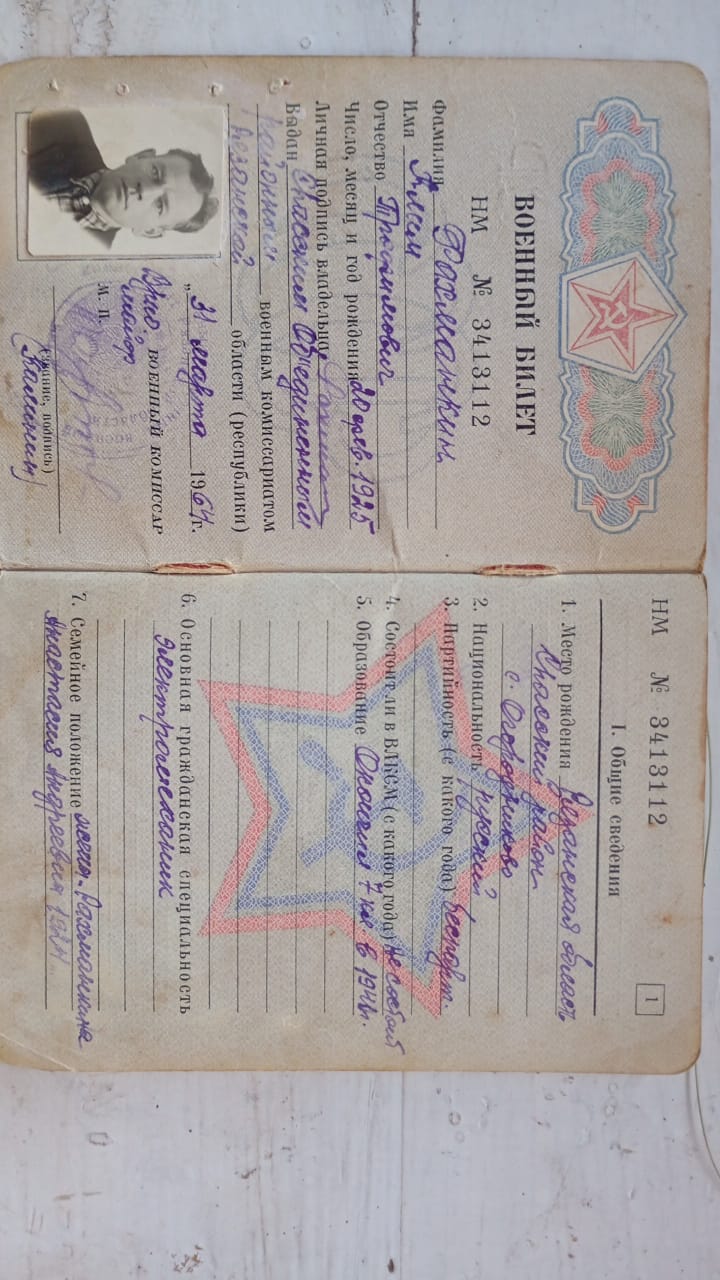 ВОЕННЫЙ БИЛЕТ
НМ № 3413112
Фамилия Рахманкин
Имя Клим
Отчество Трофимович
Число, месяц и год рождения 20 фев. 1925
Личная подпись владельца
Выдан Спасским Объединенным
районным военным комиссариатом
Рязанской области (республики)
„31 марта 1964 г.
Врио. ВОЕННЫЙ КОМИССАР
майор
М. П.
(звание, подпись)
(Калинин)
НМ № 3413112
1
I. Общие сведения
1. Место рождения Рязанская область
Спасский район
с. Огородниково
2. Национальность русский
3. Партийность (с какого года) беспарт.
4. Состоит ли в ВЛКСМ (с какого года) не состоит
5. Образование Окончил 7 кл. в 1941г.
6. Основная гражданская специальность
7. Семейное положение жена-Рахманкина
Анастасия Андреевна